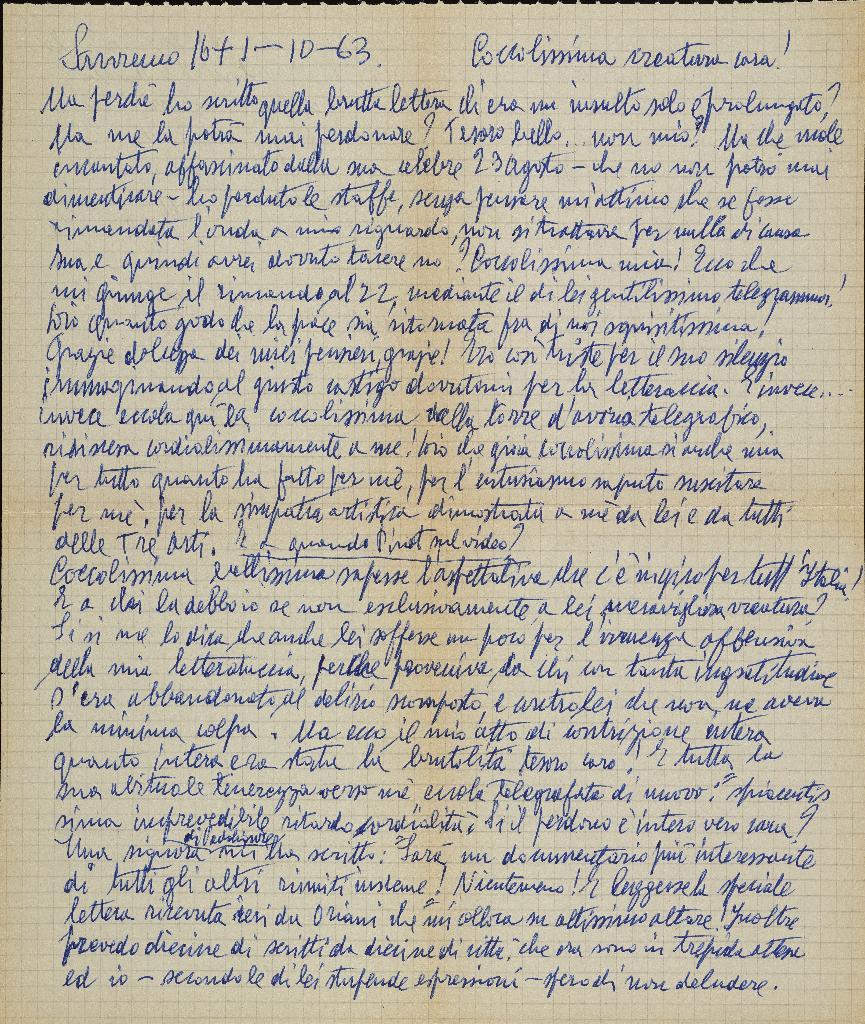 Sanremo 16+1-10-63. Coccolissima creatura cara!
Ma perché ho scritto quella brutta lettera ch'era un insulto solo e prolungato?
Ma me la potrà mai perdonare? Tesoro bello... non mio? Ma che vuole
incantato, affascinato dalla sua celebre 23 agosto - che no non potrò mai
dimenticare - ho perduto le staffe, senza pensare un attimo che se fosse
rimandata l'onda a mio riguardo, non si trattava per nulla di causa
sua e quindi avrei dovuto tacere no? Coccolissima mia! Ecco che
mi giunge il rimando al 22, mediante il di lei gentilissimo telegramma!
Dio quanto godo che la pace sia ritornata fra di noi squisitissima.
Grazie dolcezza dei miei pensieri, grazie! Ero così triste per il suo silenzio
immaginando al giusto castigo dovutomi per la letteraccia. E invece....
invece eccola qui la coccolissima dalla torre d'avorio telegrafico,
ridiscesa cordialissimamente a me! Dio che gioia coccolissima sì anche mia
per tutto quanto ha fatto per mè, per l'entusiasmo saputo suscitare
per mè, per la simpatia artistica dimostrata a mè da lei e da tutti
delle Tre Arti. E a quando Pinot sul video?
Coccolissima bellissima sapesse l'aspettativa che c'è in giro per tutt'Italia!
E a chi la debbo io se non esclusivamente a lei meravigliosa creatura?
Sì sì me lo dica che anche lei sofferse un poco per l'irruenza offensiva
della mia letteratuccia, perché proveniva da chi con tanta ingratitudine
s'era abbandonato al delirio scomposto, e contro lei che non ne aveva
la minima colpa. Ma ecco il mio atto di contrizione intera
quanto intera era stata la brutalità tesoro caro! E tutta la
sua abituale tenerezza verso mè eccola telegrafata di nuovo: "spiacentis
sima imprevedibile ritardo cordialità" Sì il perdono è intero vero cara?
Una signora di Bordighera mi ha scritto: "Sarà un documentario più interessante
di tutti gli altri riuniti insieme"! Nientemeno! E leggesse la speciale
lettera ricevuta ieri da Oriani che mi colloca su altissimo altare! Inoltre
prevedo diecine di scritti da diecine di città, che ora sono in trepida attesa
ed io - secondo le di lei stupende espressioni - spero di non deludere.